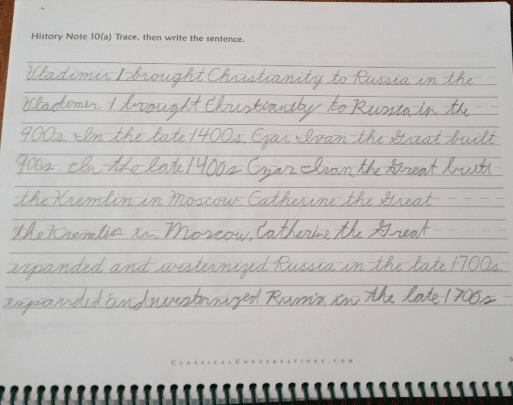 History Note 10(a) Trace, then write the sentence.
Vladimir I brought Christianity to Russia in the
Vladimir I brought Christianity to Russia in the
900s. In the late 1400s, Czar Ivan the Great built
900s. In the late 1400s Czar Ivan the Great built
the Kremlin in Moscow. Catherine the Great
the Kremlin in Moscow. Catherine the Great
expanded and westernized Russia in the late 1700s.
expanded and westernized Russia in the late 1700s
CLASSICALCONVERSATIONS.COM